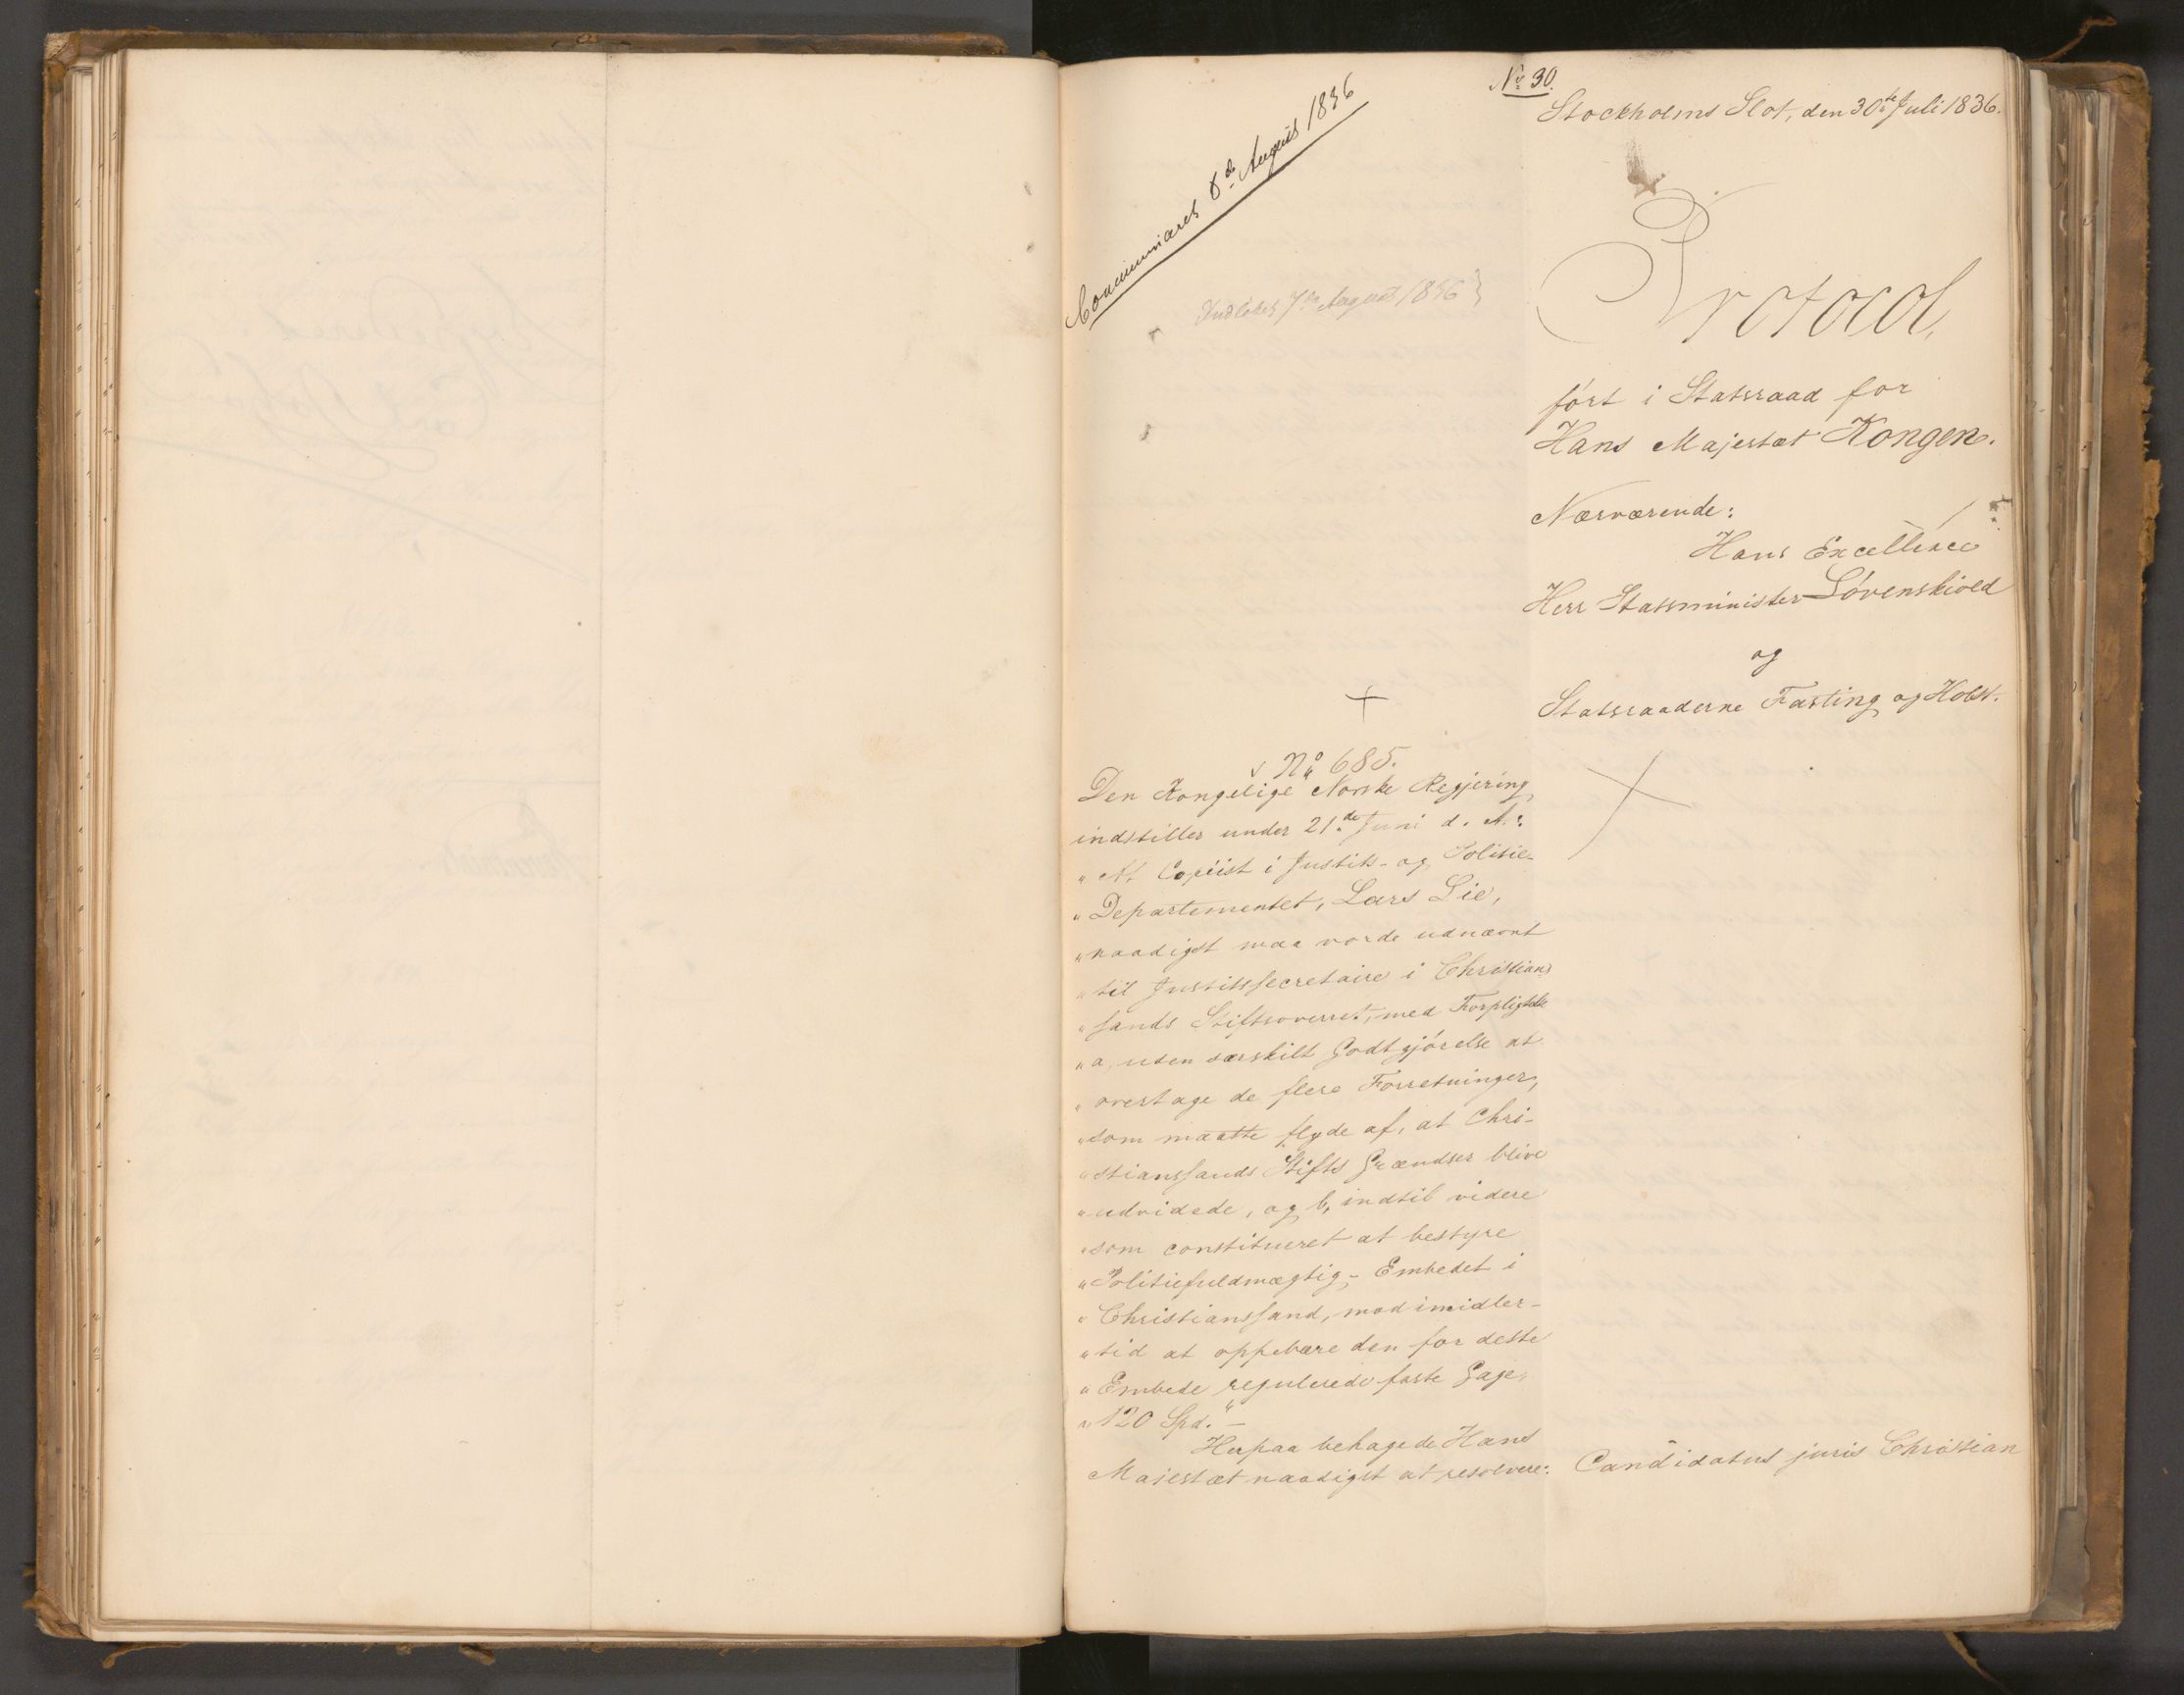 No 30.
Stockholms Slot, den 30te Juli 1836.
Communiceres 8de August 1836
Indløbet 7de August 1836
Protocol,
ført i Statsraad for
Hans Majestæt Kongen.
Nærværende:
Hans Excellence
Herr Statsminister Løvenskiold
og
Statsraaderne Fasting og Holst.
No 685.
Den Kongelige Norske Regjering
indstiller under 21de Juni d. A.:
"At Copiist i Justits- og Politie-
"Departementet, Lars Lie,
"naadigst maa vorde udnævnt
"til Justitssecretaire i Christian-
"sands Stiftsoverret, med Forpligtelse
"a, uden særskilt Godtgjørelse at
"overtage de flere Forretninger,
"som maatte flyde af, at Chri-
"stianssands Stifts Grændser blive
"udvidede, og b, indtil videre
"som constitueret at bestyre
"Politiefuldmægtig-Embedet i
"Christianssand, mod imidler-
"tid at oppebære den for dette
"Embede regulerede faste Gage,
"120 Spd." -
Herpaa behagede Hans
Majestæt naadigst at resolvere:
Candidatus juris Christian